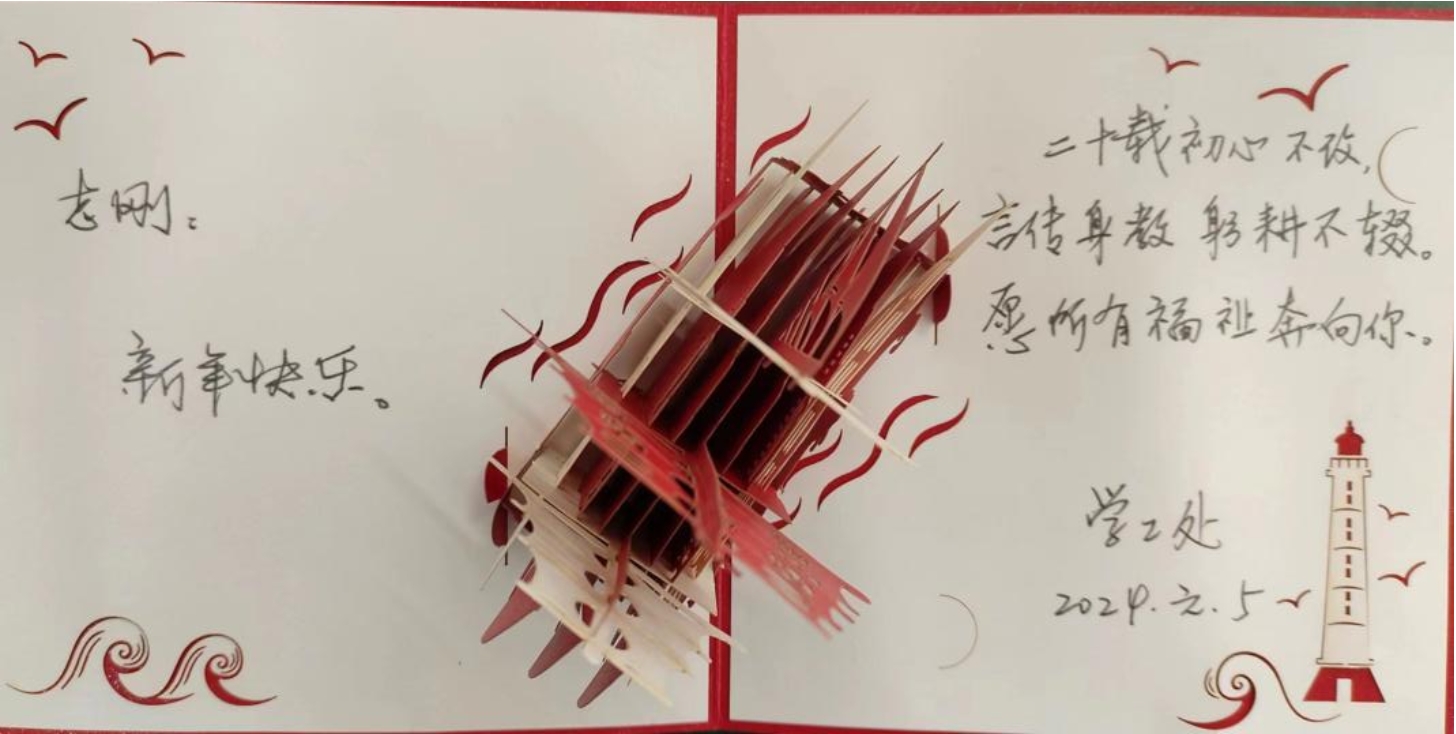 志刚：
新年快乐。
二十载初心不改，
言传身教 躬耕不辍。
愿所有福祉奔向你。
学工处
2024.元.5